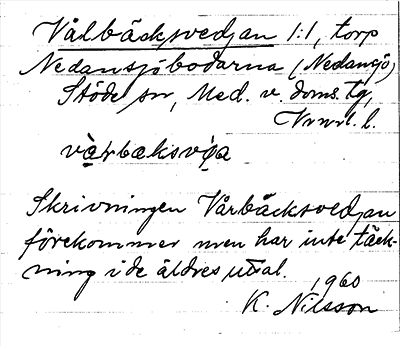 Vålbäcksvedjan 1:1, torp
Nedansjöbodarna (Nedansjö)
Stöde sn, Med. v. doms. tg,
Vnrl. l.
Skrivningen Vårbäcksvedjan
förekommer men har inte täck-
ning i de äldres uttal.
1960
K. Nilsson